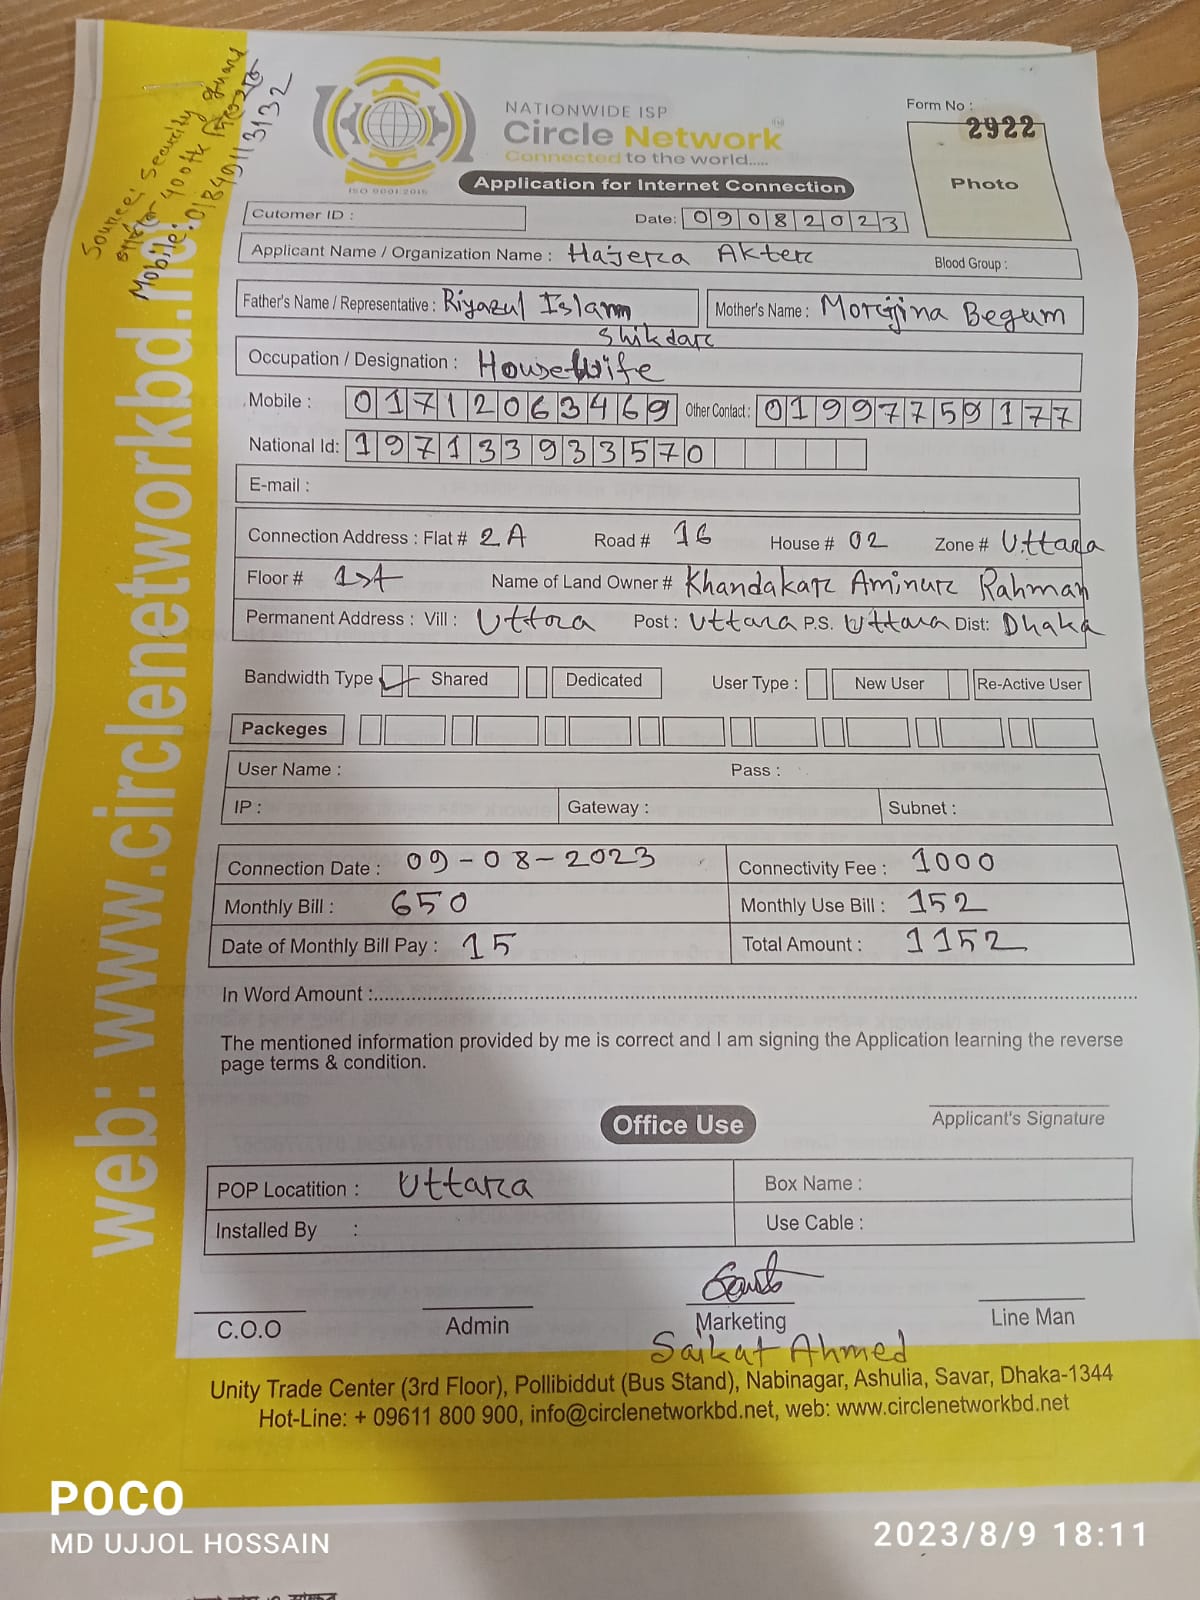 Source: Security guard
400tk
Mobile: 01849113132
NATIONWIDE ISP
Circle Network
Connected to the world.....
ISO 9001:2015
Form No :
2922
Photo
Application for Internet Connection
Cutomer ID :
Date: 09082023
Applicant Name / Organization Name : Hajera Akter
Blood Group :
Father's Name / Representative : Riyazul Islam Shikdar
Mother's Name : Morgina Begum
Occupation / Designation : Housewife
Mobile : 01712063469 Other Contact : 01997759177
National Id: 1971339333570
E-mail :
Connection Address : Flat # 2A Road # 16 House # 02 Zone # Uttara
Floor # 1st Name of Land Owner # Khandakar Aminur Rahman
Permanent Address : Vill : Uttora Post : Uttara P.S. Uttara Dist: Dhaka
Bandwidth Type Shared Dedicated User Type : New User Re-Active User
Packeges
User Name : Pass :
IP : Gateway : Subnet :
Connection Date : 09-08-2023 Connectivity Fee : 1000
Monthly Bill : 650 Monthly Use Bill : 152
Date of Monthly Bill Pay : 15 Total Amount : 1152
In Word Amount :
The mentioned information provided by me is correct and I am signing the Application learning the reverse
page terms & condition.
Applicant's Signature
Office Use
POP Locatition : Uttara Box Name :
Installed By : Use Cable :
C.O.O Admin Marketing Line Man
Saikat Ahmed
Unity Trade Center (3rd Floor), Pollibiddut (Bus Stand), Nabinagar, Ashulia, Savar, Dhaka-1344
Hot-Line: + 09611 800 900, info@circlenetworkbd.net, web: www.circlenetworkbd.net
web: www.circlenetworkbd.net
POCO
MD UJJOL HOSSAIN
2023/8/9 18:11